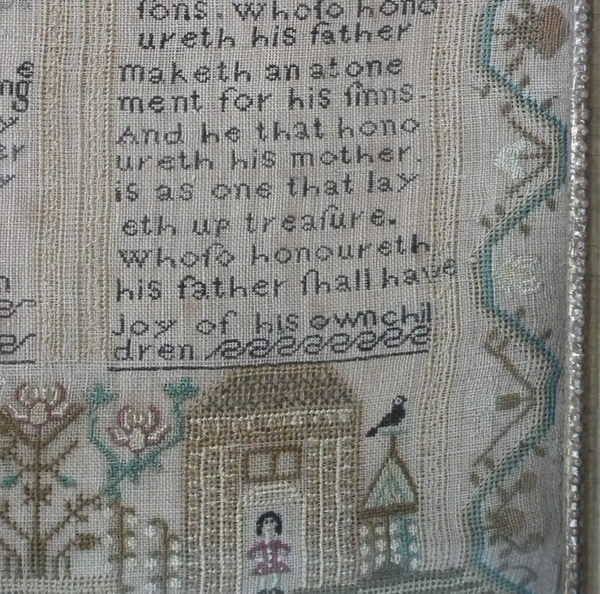 ſons. Whoſo hono
ureth his father
maketh an atone
ment for his ſinns.
And he that hono
ureth his mother.
is as one that lay
eth up treaſure.
Whoſo honoureth
his father ſhall have
Joy of his own chil
dren